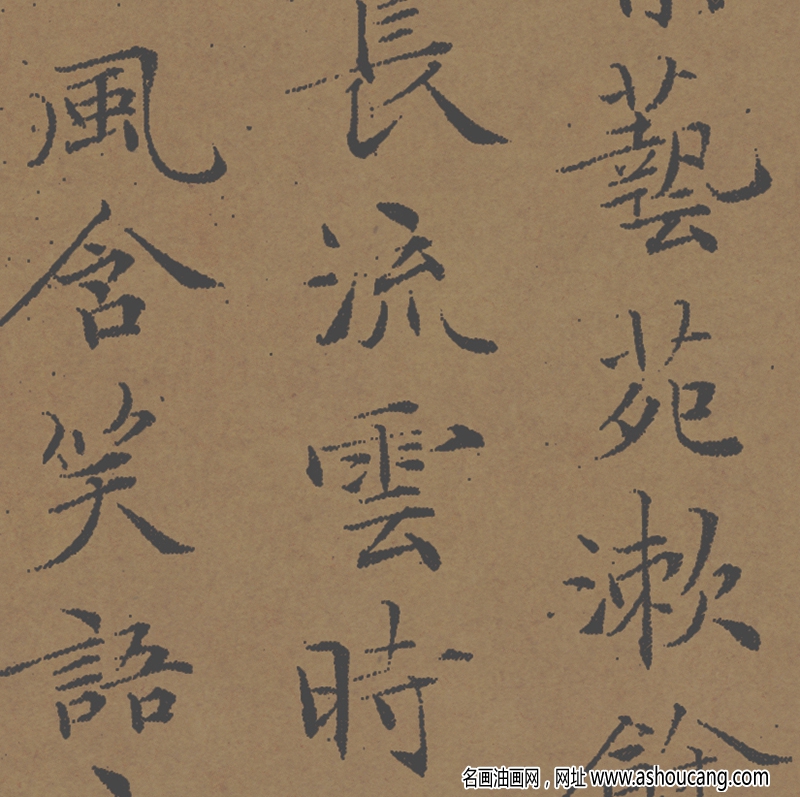 藝苑漱
長流雲時
風含笑語
名画油画网，网址 www.ashoucang.com